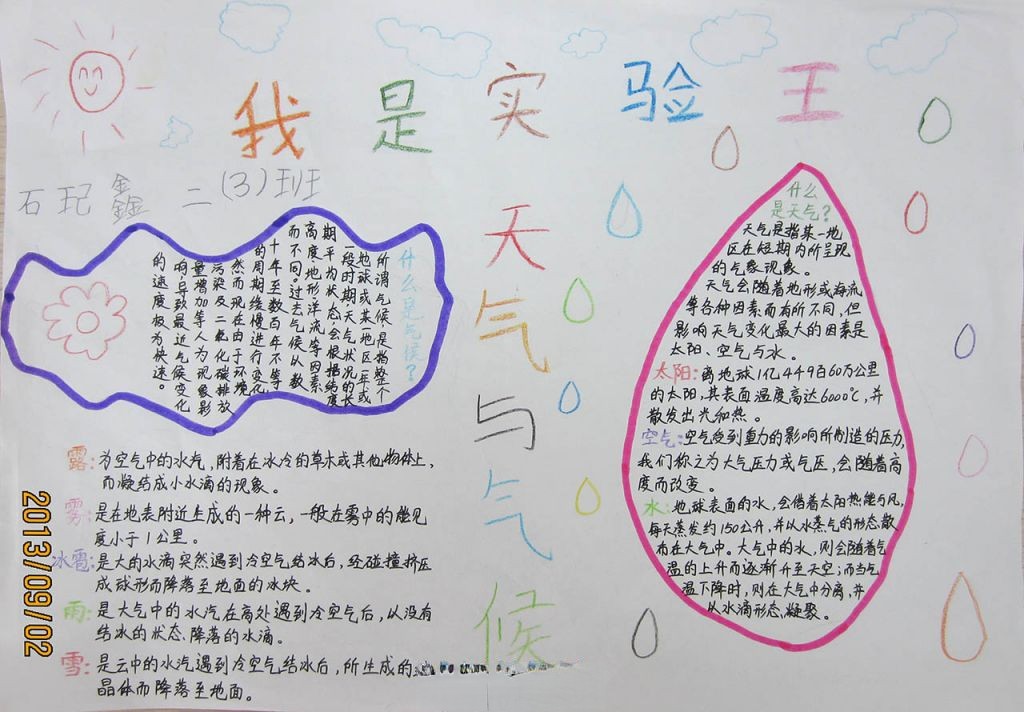 我是实验王
石玘鑫 二(3)班
天气与气候
什么是气候?
所谓气候是指整个
地球或某一地区一年或
一段时期天气状况的长
期平均状态会根据纬度
高度地形洋流等因素
而不同。过去气候从数
十年至数百年不等
的周期缓慢进行变化
然而现在由于环境
污染及二氧化碳排放
量增加等人为现象影
响,导致最近气候变化
的速度极为快速。
露:为空气中的水汽,附着在冰冷的草木或其他物体上,
而凝结成小水滴的现象。
雾:是在地表附近上成的一种云,一般在雾中的能见
度小于1公里。
冰雹:是大的水滴突然遇到冷空气结冰后,经碰撞挤压
成球形而降落至地面的冰块。
雨:是大气中的水汽在高处遇到冷空气后,从没有
结冰的状态,降落的水滴。
雪:是云中的水汽遇到冷空气结冰后,所生成的
晶体而降落至地面。
什么
是天气?
天气是指某一地
区在短期内所呈现
的气象现象。
天气会随着地形或海流
等各种因素而有所不同,但
影响天气变化最大的因素是
太阳、空气与水。
太阳:离地球1亿4千9百60万公里
的太阳,其表面温度高达6000℃,并
散发出光和热。
空气:空气受到重力的影响所制造的压力,
我们称之为大气压力或气压,会随着高
度而改变。
水:地球表面的水,会借着太阳热能与风,
每天蒸发约150公升,并以水蒸气的形态散
布在大气中。大气中的水,则会随着气
温的上升而逐渐升至天空;而当气
温下降时,则在大气中分离,并
以水滴形态凝聚。
2013/09/02